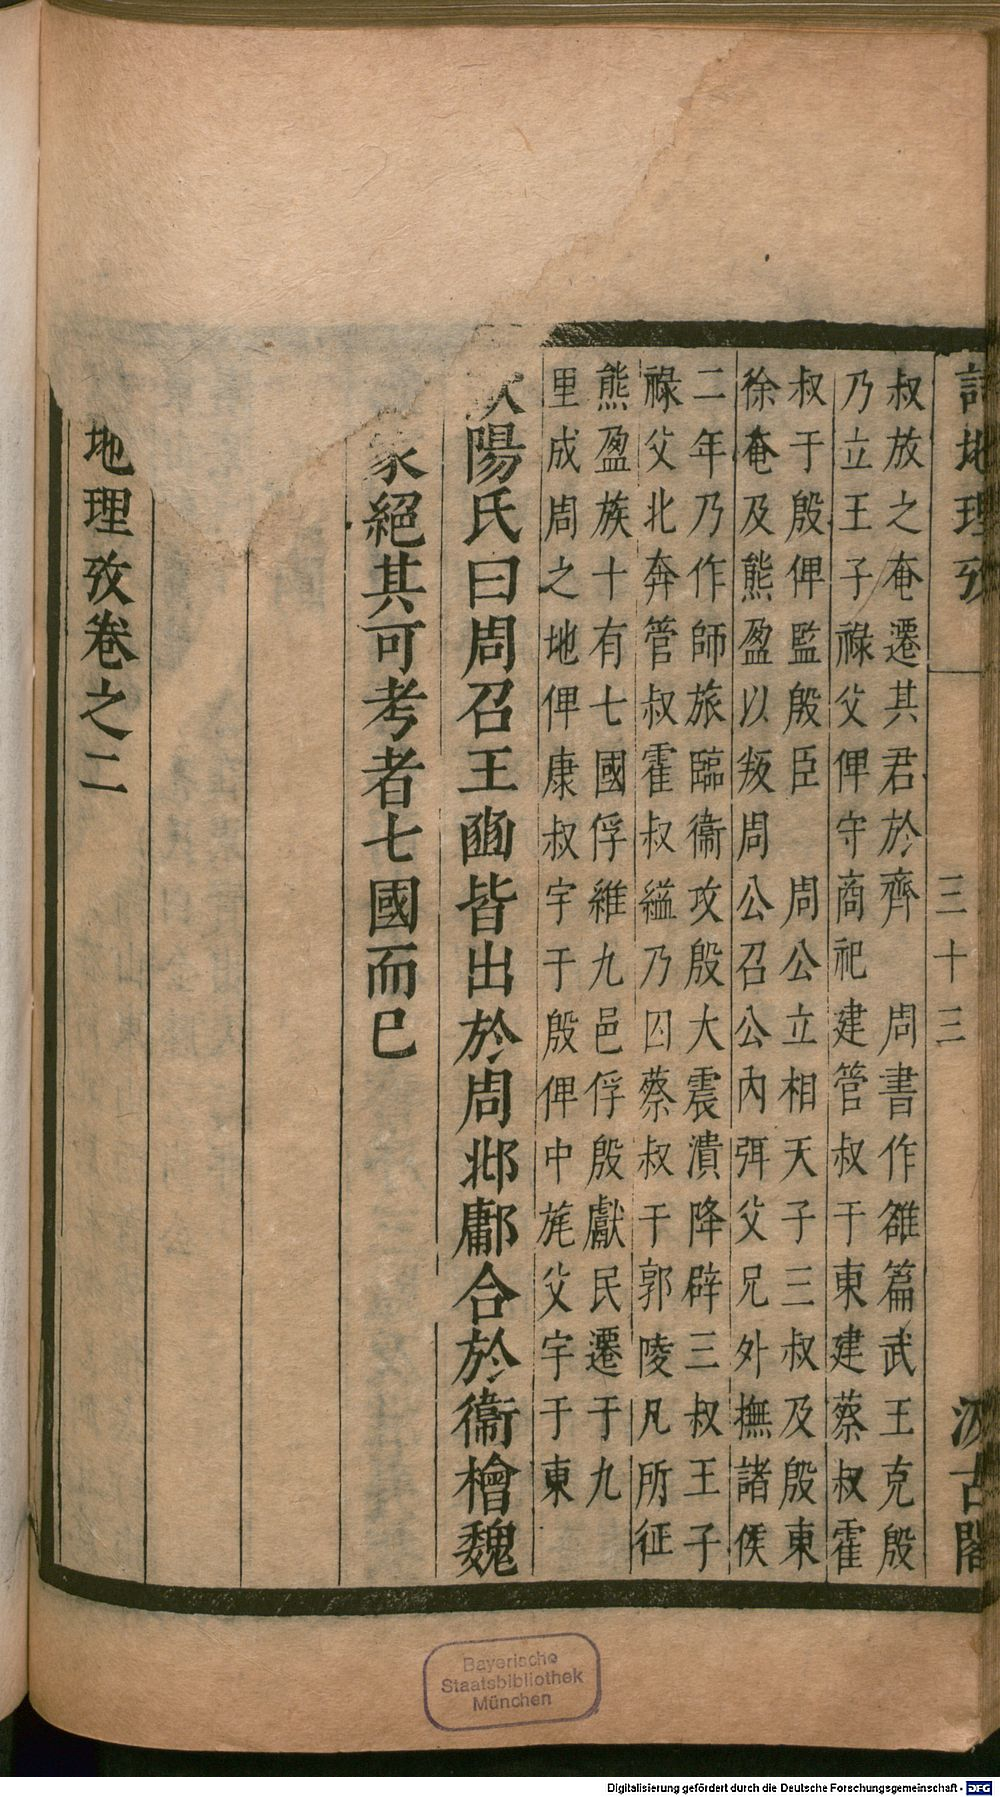 詩地理攷
三十三
汲古閣
叔放之奄遷其君於齊 周書作雒篇武王克殷
乃立王子祿父俾守商祀建管叔于東建蔡叔霍
叔于殷俾監殷臣 周公立相天子三叔及殷東
徐奄及熊盈以叛周公召公內弭父兄外撫諸侯
二年乃作師旅臨衞攻殷大震潰降辟三叔王子
祿父北奔管叔霍叔縊乃囚蔡叔于郭陵凡所征
熊盈族十有七國俘維九邑俘殷獻民遷于九
里成周之地俾康叔宇于殷俾中旄父宇于東
陽氏曰周召王豳皆出於周邶鄘合於衞檜魏
家絕其可考者七國而已
地理攷卷之二
Bayerische
Staatsbibliothek
München
Digitalisierung gefördert durch die Deutsche Forschungsgemeinschaft - DFG